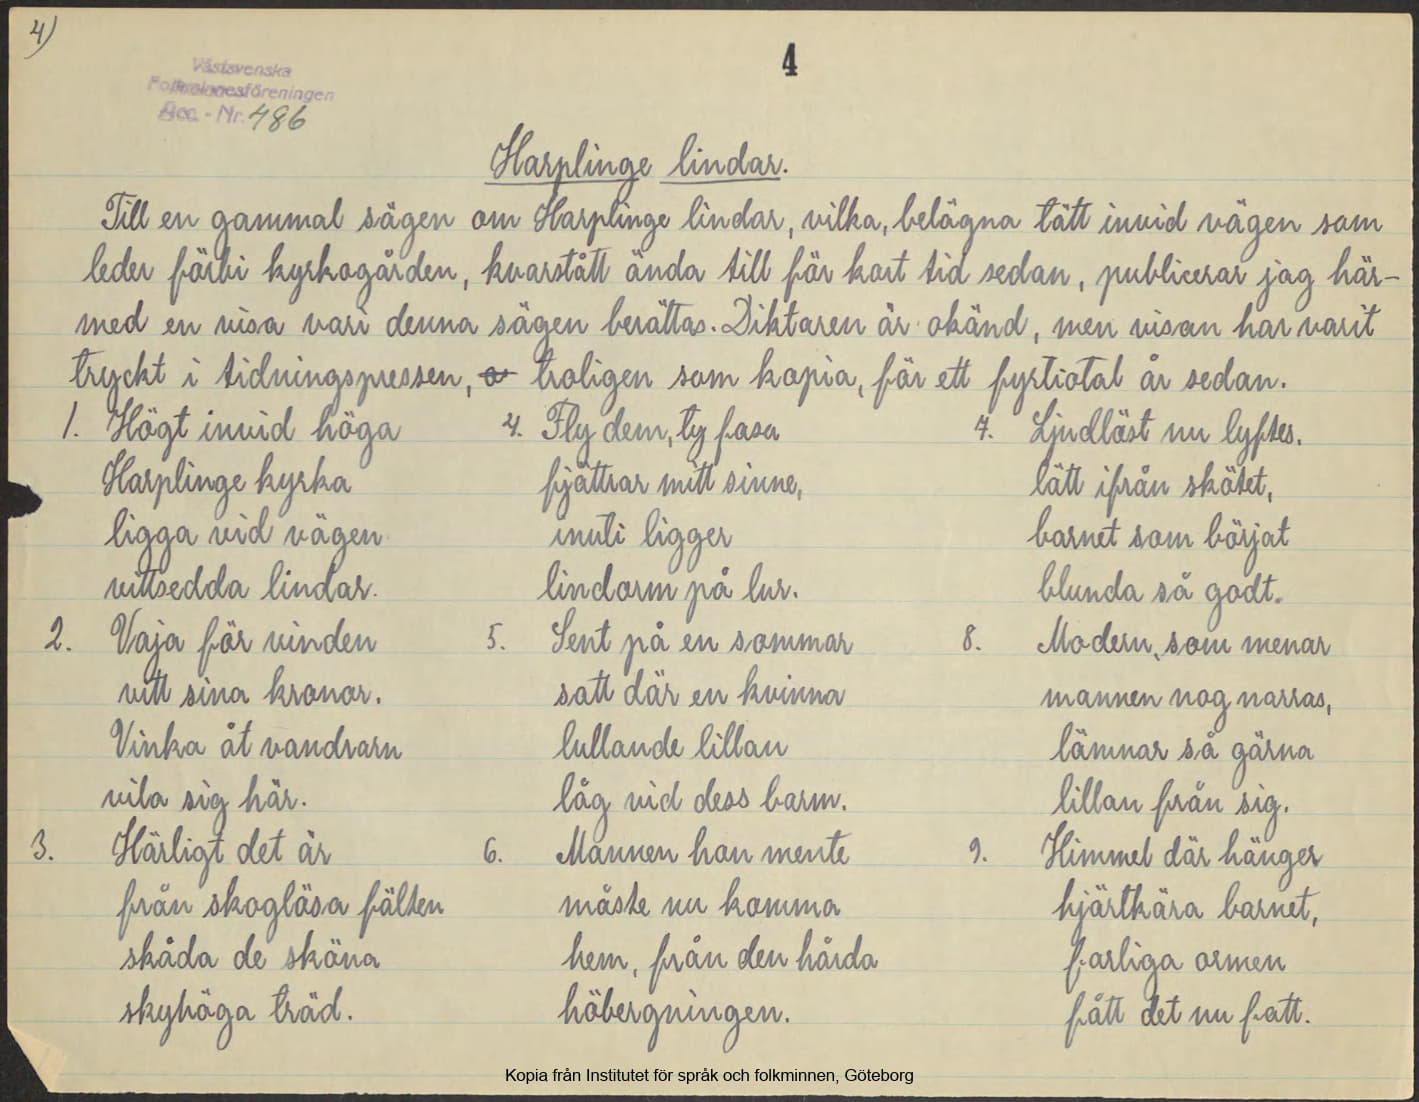 4)
4
Västsvenska
Folkminnesföreningen
Acc. - Nr. 486
Harplinge lindar.
Till en gammal sägen om Harplinge lindar, vilka, belägna tätt invid vägen som
leder förbi kyrkogården, kvarstått ända till för kort tid sedan, publicerar jag här-
med en visa vari denna sägen berättas. Diktaren är okänd, men visan har varit
tryckt i tidningspressen, troligen som kopia, för ett fyrtiotal år sedan.
1. Högt invid höga
Harplinge kyrka
ligga vid vägen
vittsedda lindar.
2. Vaja för vinden
vitt sina kronor.
Vinka åt vandrarn
vila sig här.
3. Härligt det är
från skoglösa fälten
skåda de sköna
skyhöga träd.
4. Fly dem, ty fasa
fjättrar mitt sinne,
inuti ligger
lindorm på lur.
5. Sent på en sommar
satt där en kvinna
lullande lillan
låg vid dess barm.
6. Mannen hon mente
måste nu komma
hem, från den hårda
höbergningen.
7. Ljudlöst nu lyftes.
lätt ifrån skötet,
barnet som börjat
blunda så godt.
8. Modern, som menar
mannen nog narras,
lämnar så gärna
lillan från sig.
9. Himmel där hänger
hjärtkära barnet,
farliga ormen
fått det nu fatt.
Kopia från Institutet för språk och folkminnen, Göteborg